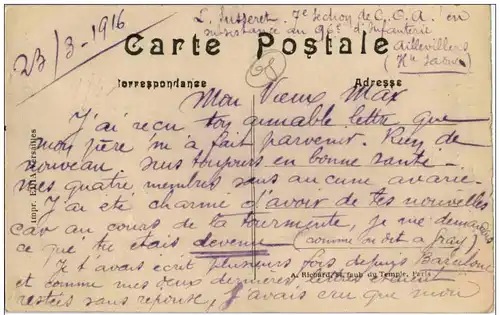 23/3-1916
L. Jusseret. 7e Section de C.O.A. en
subsistance du 96e d'Infanterie
Aillevillers
(Hte Saône)
Carte Postale
Correspondance
Adresse
Mon Vieux Max
J'ai reçu ton aimable lettre que
mon père m'a fait parvenir. Rien de
nouveau, suis toujours en bonne santé -
mes quatre membres sans aucune avarie.
J'ai été charmé d'avoir de tes nouvelles
car au cours de la tourmente, je me demandais
ce que tu étais devenu (comme on dit à Gray)
Je t'avais écrit plusieurs fois depuis Barcelone
et comme mes deux dernières lettres étaient
restées sans réponse, j'avais cru que mon
Impr. Versailles
A. Richard, 84, faub. du Temple, Paris